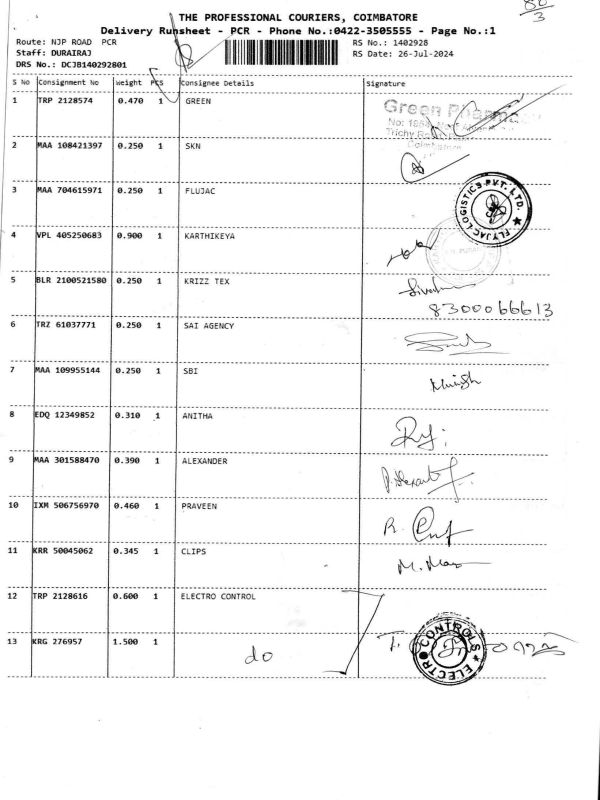 80
3
THE PROFESSIONAL COURIERS, COIMBATORE
Delivery Runsheet - PCR - Phone No.:0422-3505555 - Page No.:1
Route: NJP ROAD PCR RS No.: 1402928
Staff: DURAIRAJ RS Date: 26-Jul-2024
DRS No.: DCJB140292801
S No Consignment No Weight PCS Consignee Details Signature
1 TRP 2128574 0.470 1 GREEN
Green
2 MAA 108421397 0.250 1 SKN
Coimbatore
3 MAA 704615971 0.250 1 FLUJAC
FLYJAC LOGISTICS PVT. LTD.
4 VPL 405250683 0.900 1 KARTHIKEYA
5 BLR 2100521580 0.250 1 KRIZZ TEX
8300066613
6 TRZ 61037771 0.250 1 SAI AGENCY
7 MAA 109955144 0.250 1 SBI
8 EDQ 12349852 0.310 1 ANITHA
9 MAA 301588470 0.390 1 ALEXANDER
10 IXM 506756970 0.460 1 PRAVEEN
11 KRR 50045062 0.345 1 CLIPS
12 TRP 2128616 0.600 1 ELECTRO CONTROL
13 KRG 276957 1.500 1 do
ELECTRO CONTROLS